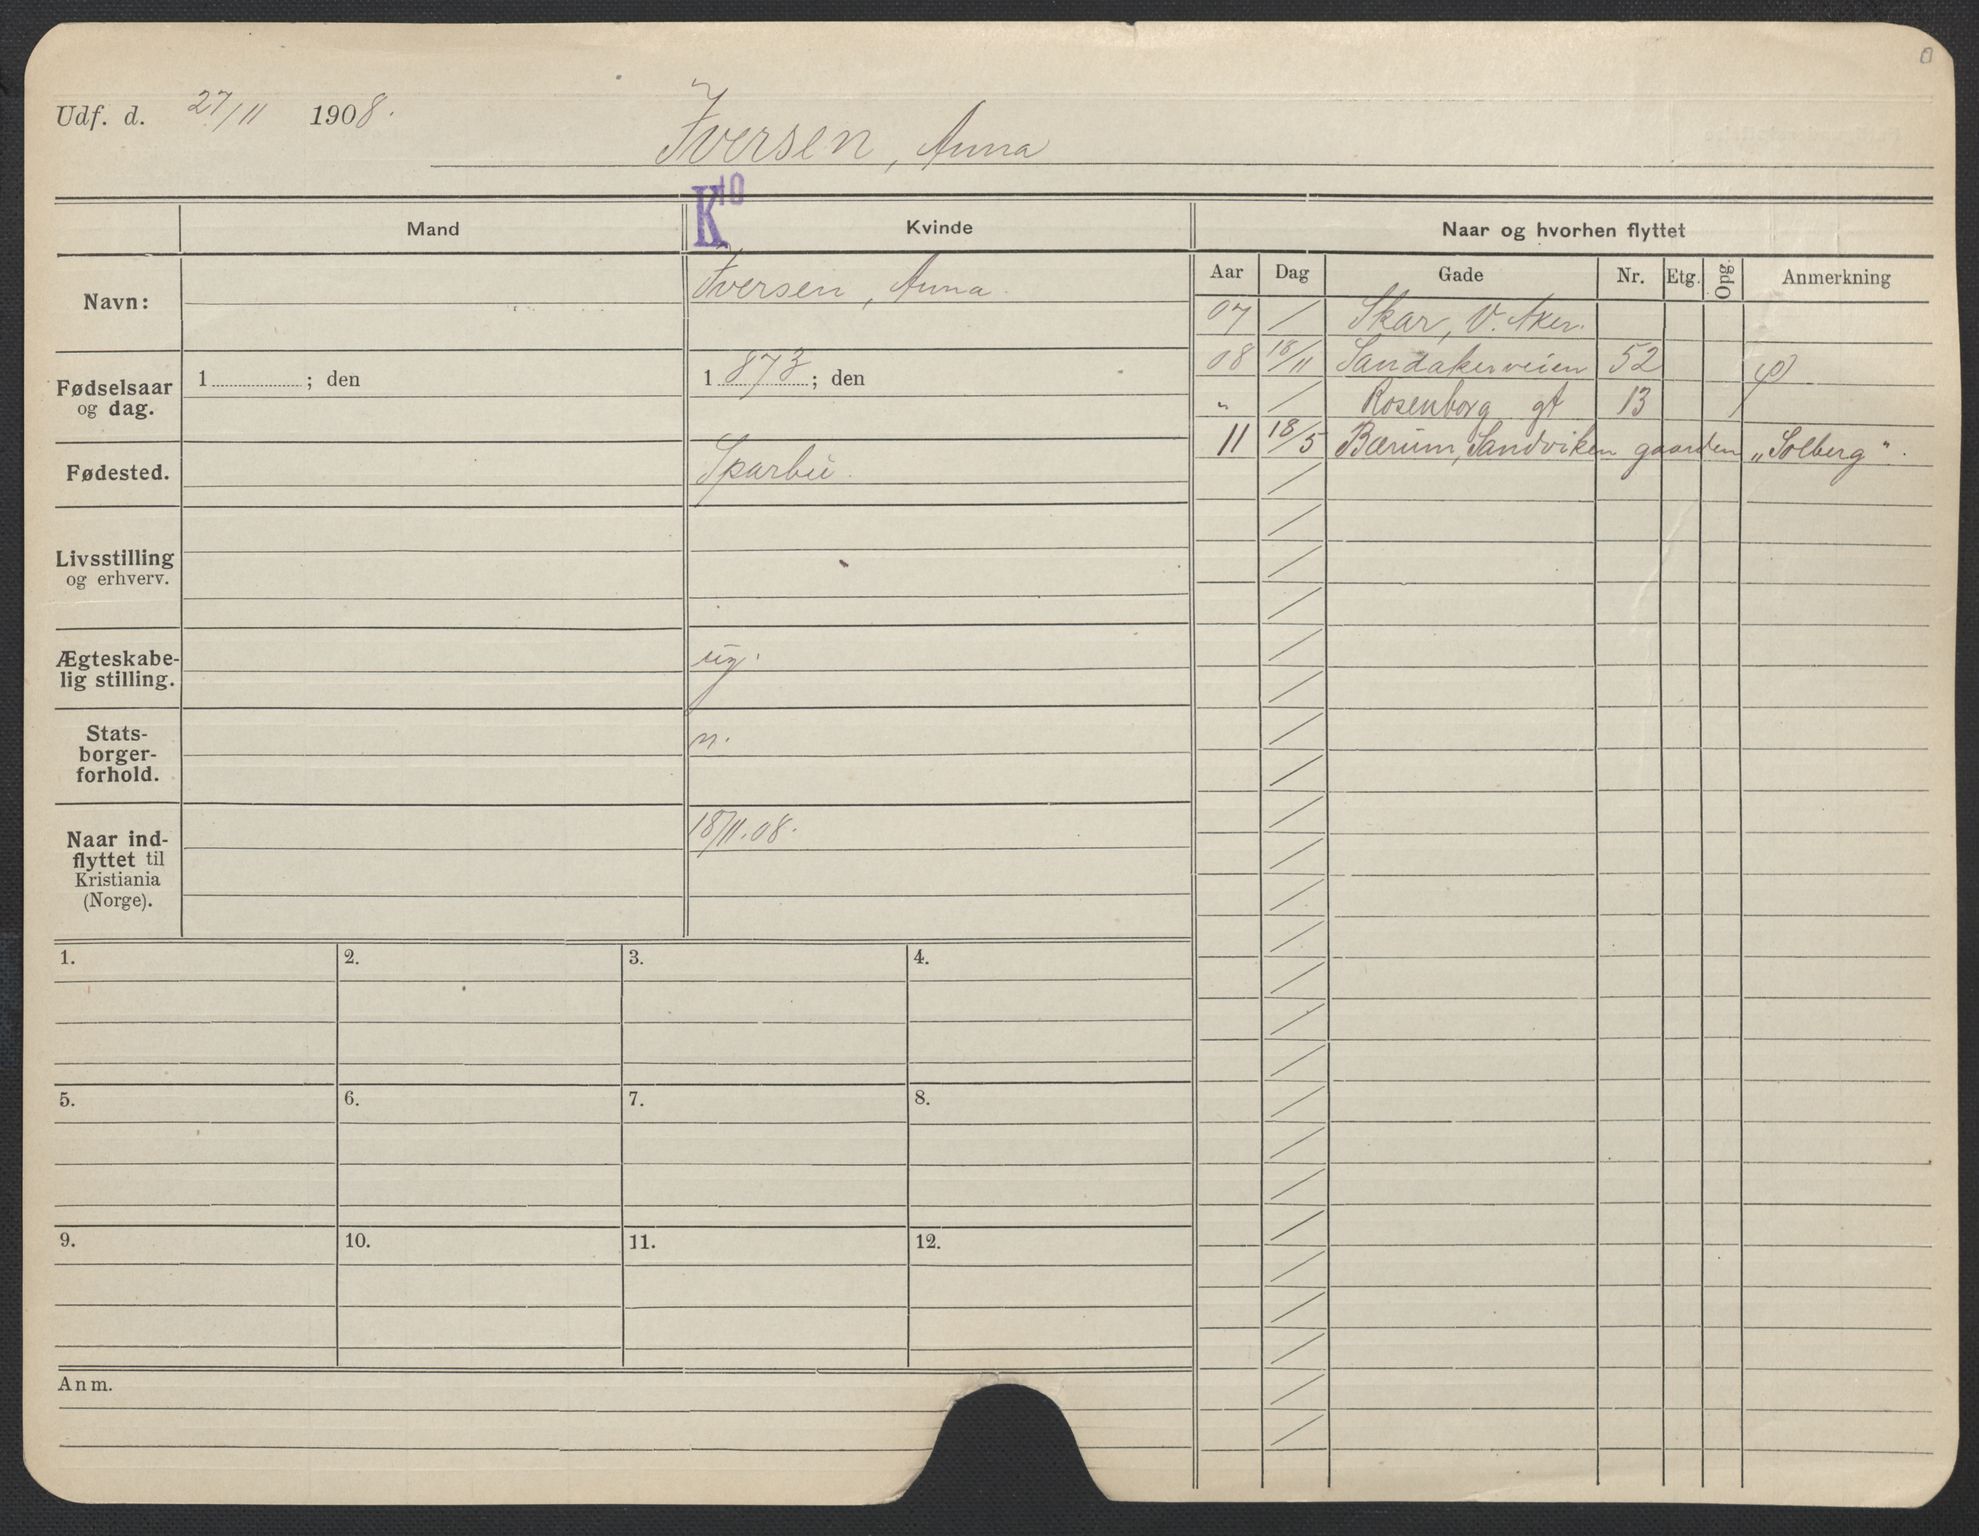 Udf. d. 27/11 1908.
Iversen, Anna
K10
Mand
Kvinde
Naar og hvorhen flyttet
Aar Dag Gade Nr. Etg. Opg. Anmerkning
Navn:
Iversen, Anna.
Fødselsaar
og dag.
1 ; den
1 873 ; den
Fødested.
Sparbu.
Livsstilling
og erhverv.
Ægteskabe-
lig stilling.
ug.
Stats-
borger-
forhold.
n.
Naar ind-
flyttet til
Kristiania
(Norge).
18/11.08.
07 / Skar, V. Aker.
08 18/11 Sandakerveien 52
" / Rosenborg gt 13
11 18/5 Bærum, Sandviken gaarden „Solberg".
1. 2. 3. 4.
5. 6. 7. 8.
9. 10. 11. 12.
Anm.